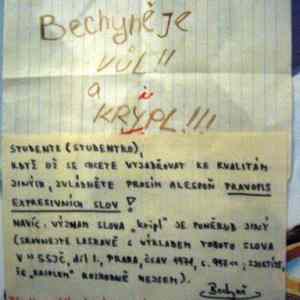 Bechyně je
VŮL!!
a i
KRYPL!!!
STUDENTE (STUDENTKO),
KDYŽ UŽ SE CHCETE VYJADŘOVAT KE KVALITÁM
JINÝCH, ZVLÁDNĚTE PROSÍM ALESPOŇ PRAVOPIS
EXPRESIVNÍCH SLOV!
NAVÍC: VÝZNAM SLOVA „kripl" JE PONĚKUD JINÝ
(SROVNEJTE LASKAVĚ S VÝKLADEM TOHOTO SLOVA
V SSJČ, díl I., PRAHA, ČSAV 1971, s. ZJISTÍTE,
ŽE „KRIPLEM" ROZHODNĚ NEJSEM).
Bechyně